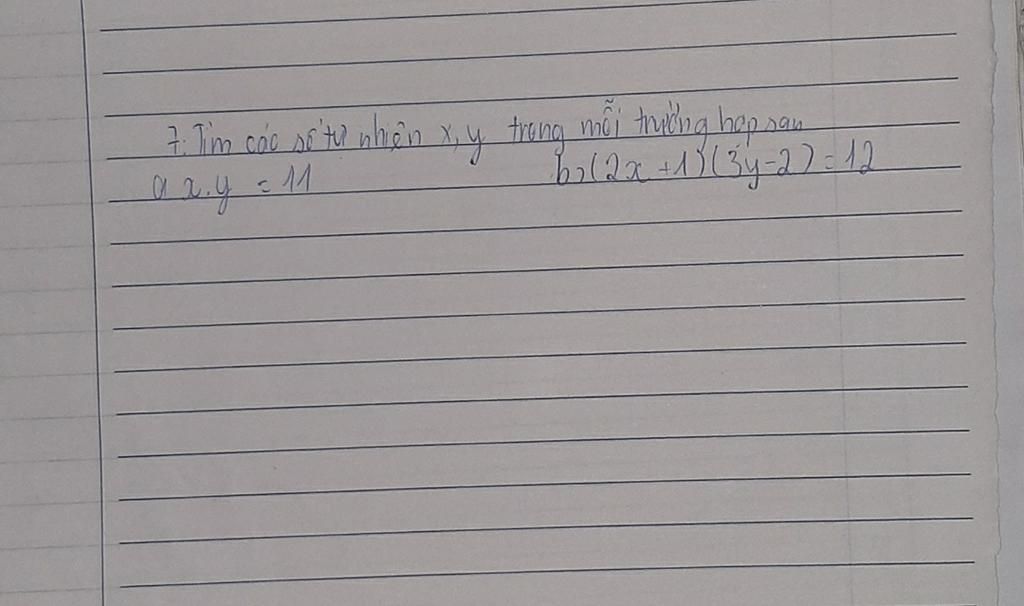 7. Tìm các số tự nhiên x, y trong mỗi trường hợp sau
a x.y = 11 b>(2x+1)(3y-2)=12